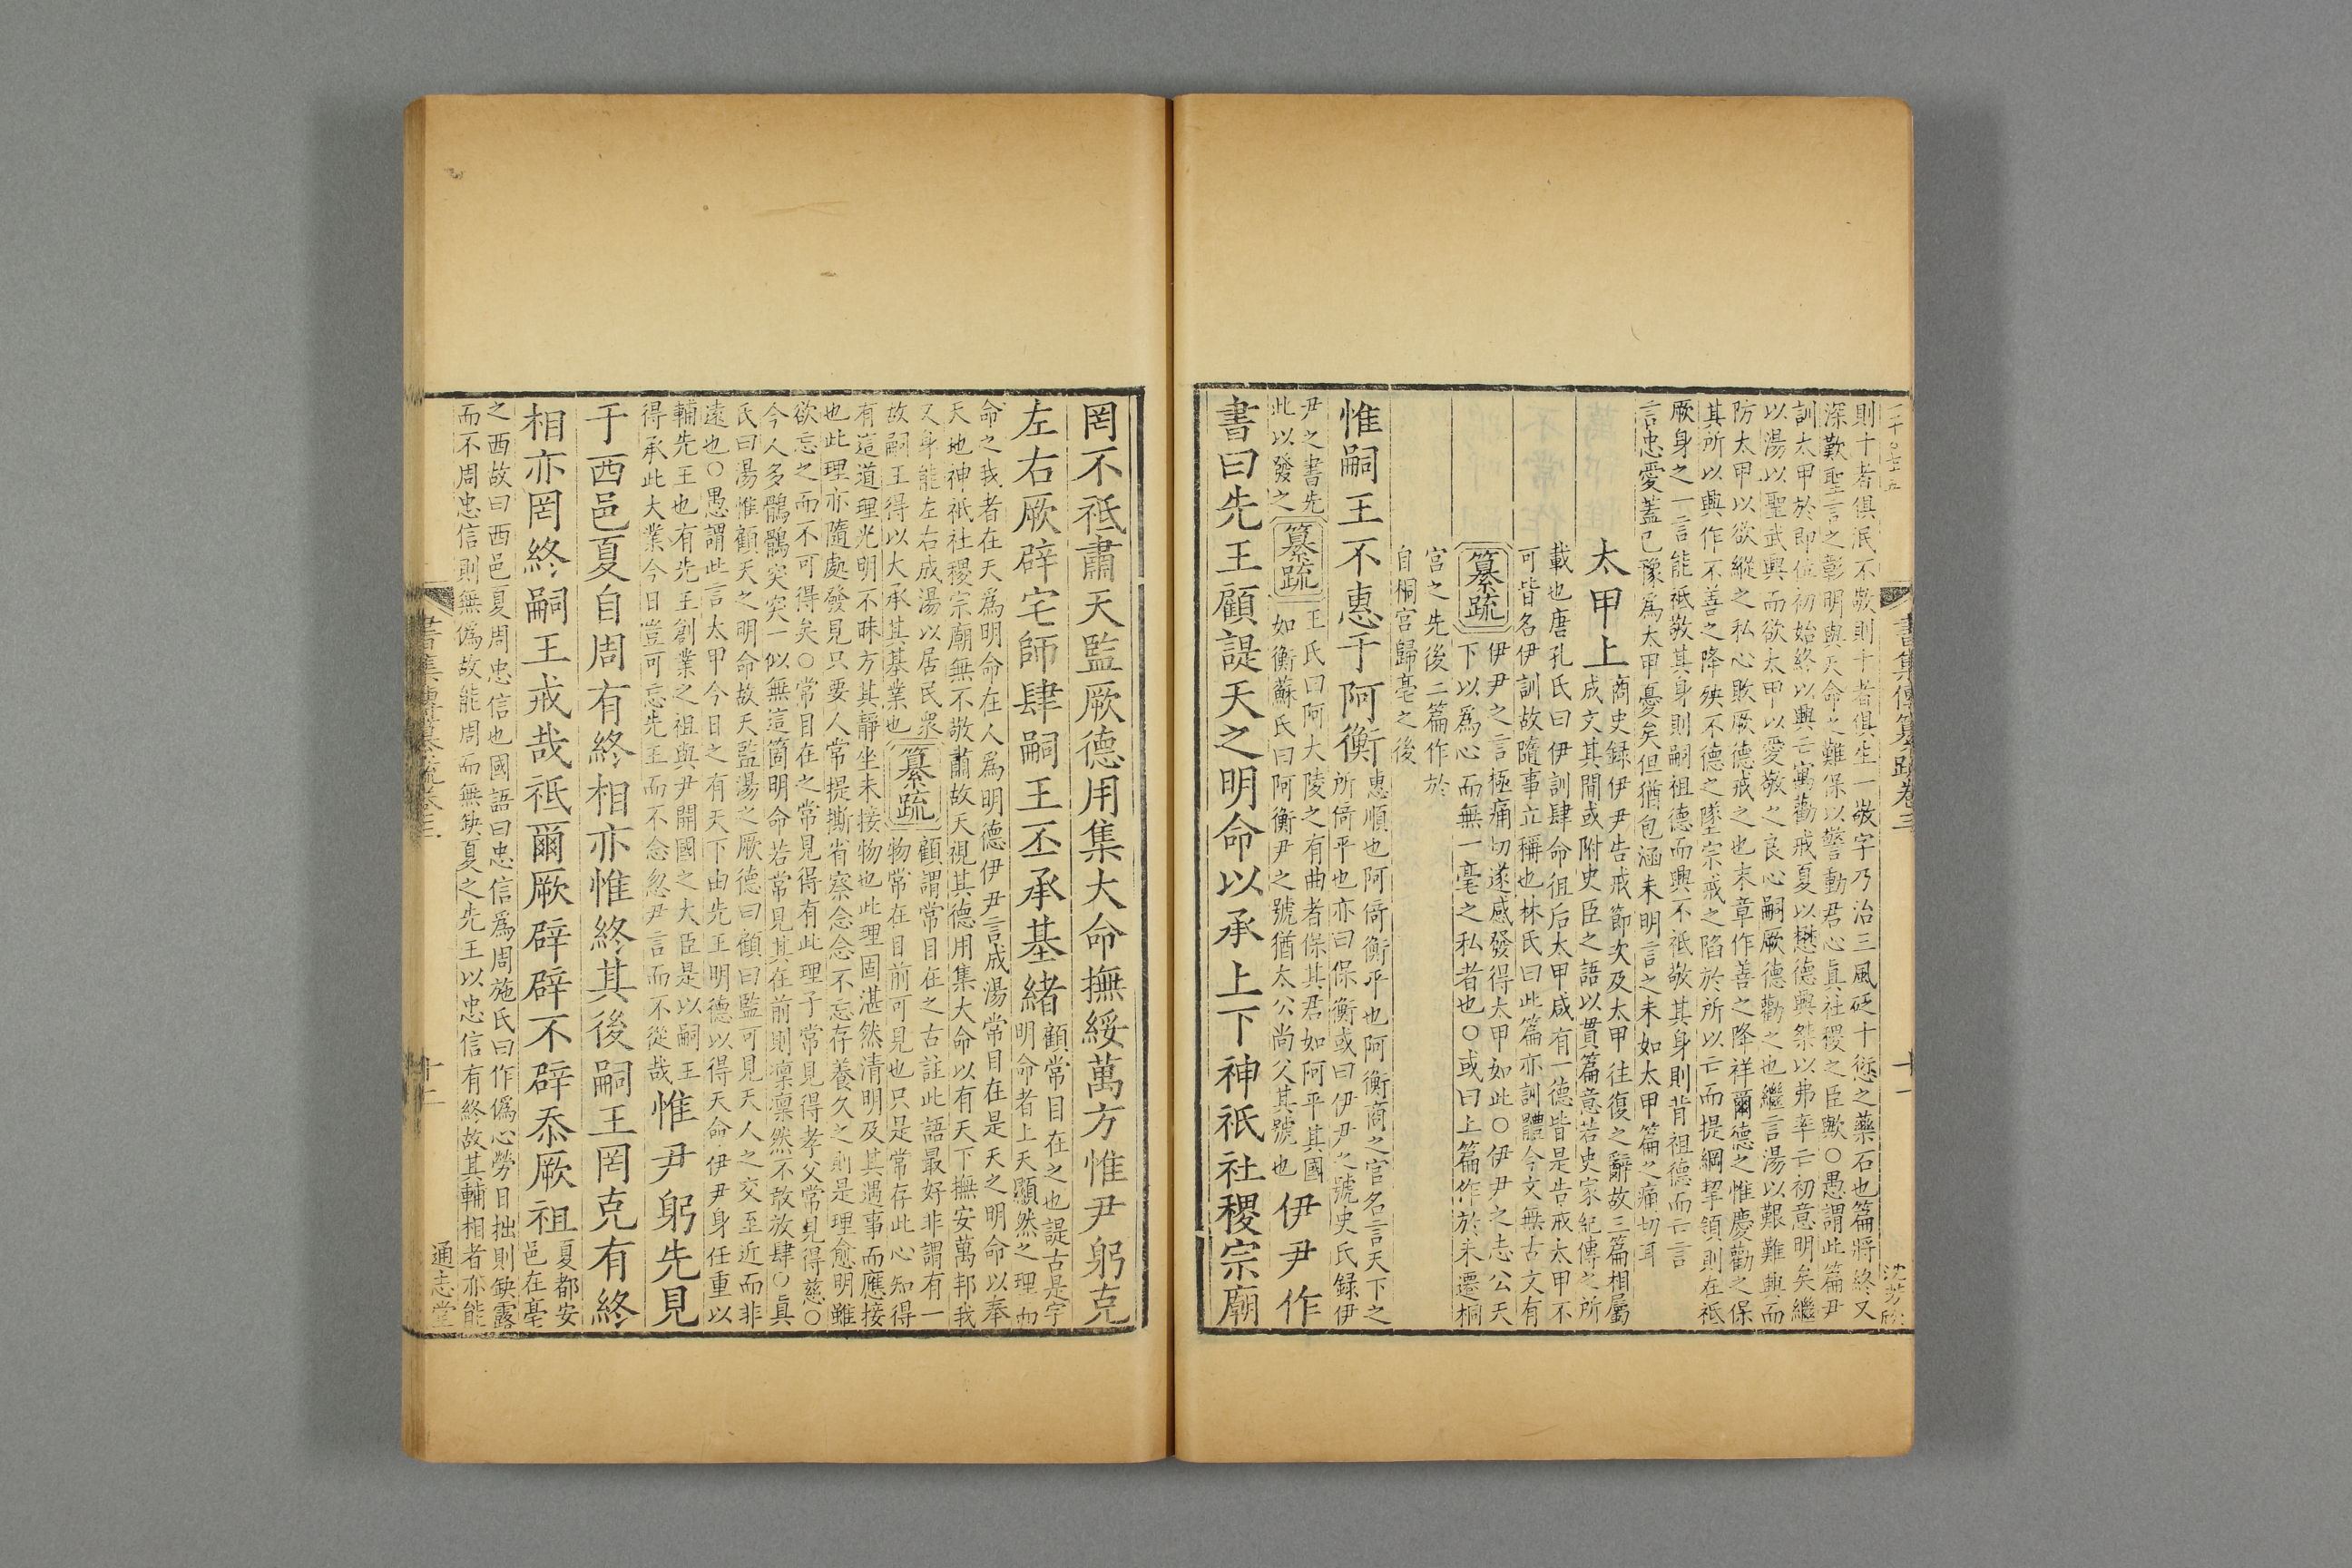 書集傳纂疏卷三
十一
則十者俱泯不敬則十者俱生一敬字乃治三風砭十愆之藥石也篇將終又
深歎聖言之彰明與天命之難保以警動君心眞社稷之臣歟○愚謂此篇尹
訓太甲於即位初始終以興亡寓勸戒夏以懋德興桀以弗率亡初意明矣繼
以湯以聖武興而欲太甲以愛敬之良心嗣厥德勸之也繼言湯以艱難興而
防太甲以欲縱之私心敗厥德戒之也末章作善之降祥爾德之惟慶勸之保
其所以興作不善之降殃不德之墜宗戒之陷於所以亡而提綱挈領則在祗
厥身之一言能祗敬其身則嗣祖德而興不祗敬其身則背祖德而亡言
言忠愛蓋已豫爲太甲憂矣但猶包涵未明言之未如太甲篇之痛切耳
太甲上
商史録伊尹告戒節次及太甲往復之辭故三篇相屬
成文其間或附史臣之語以貫篇意若史家紀傳之所
載也唐孔氏曰伊訓肆命徂后太甲咸有一德皆是告戒太甲不
可皆名伊訓故隨事立稱也林氏曰此篇亦訓體今文無古文有
纂疏
伊尹之言極痛切遂感發得太甲如此○伊尹之志公天
下以爲心而無一毫之私者也○或曰上篇作於未遷桐
宮之先後二篇作於
自桐宮歸亳之後
惟嗣王不惠于阿衡
惠順也阿倚衡平也阿衡商之官名言天下之
所倚平也亦曰保衡或曰伊尹之號史氏録伊
尹之書先
此以發之
纂疏
王氏曰阿大陵之有曲者保其君如阿平其國
如衡蘇氏曰阿衡尹之號猶太公尚父其號也
伊尹作
書曰先王顧諟天之明命以承上下神祇社稷宗廟
罔不祗肅天監厥德用集大命撫綏萬方惟尹躬克
左右厥辟宅師肆嗣王丕承基緒
顧常目在之也諟古是字
明命者上天顯然之理而
命之我者在天爲明命在人爲明德伊尹言成湯常目在是天之明命以奉
天地神祇社稷宗廟無不敬肅故天視其德用集大命以有天下撫安萬邦我
又身能左右成湯以居民衆
故嗣王得以大承其基業也
纂疏
顧謂常目在之古註此語最好非謂有一
物常在目前可見也只是常存此心知得
有這道理光明不昧方其靜坐未接物也此理固湛然清明及其遇事而應接
也此理亦隨處發見只要人常提撕省察念念不忘存養久之則是理愈明雖
欲忘之而不可得矣○常目在之常見得有此理子常見得孝父常見得慈○
今人多鶻鶻突突一似無這箇明命若常見其在前則凜凜然不敢放肆○真
氏曰湯惟顧天之明命故天監湯之厥德曰顧曰監可見天人之交至近而非
遠也○愚謂此言太甲今日之有天下由先王明德以得天命伊尹身任重以
輔先王也有先王創業之祖與尹開國之大臣是以嗣王
得承此大業今日豈可忘先王而不念忽尹言而不從哉
惟尹躬先見
于西邑夏自周有終相亦惟終其後嗣王罔克有終
相亦罔終嗣王戒哉祗爾厥辟辟不辟忝厥祖
夏都安
邑在亳
之西故曰西邑夏周忠信也國語曰忠信爲周施氏曰作僞心勞日拙則缺露
而不周忠信則無僞故能周而無缺夏之先王以忠信有終故其輔相者亦能
書集傳纂疏卷三
十二
通志堂